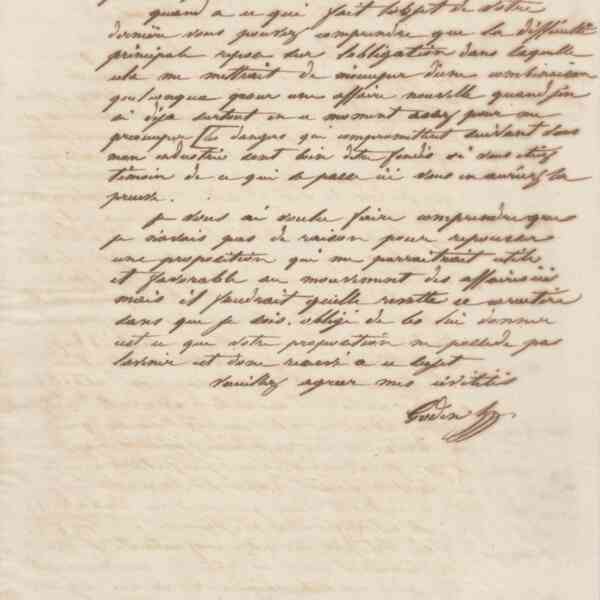 quand a ce qui fait l'objet de votre
dernière vous pouvez comprendre que la difficulté
principale repose sur l'obligation dans laquelle
cela me mettrait de m'occuper d'une combinaison
quelconque pour une affaire nouvelle quand j'en
ai déja surtout en ce moment assez pour me
préoccuper [les dangers qui compromettent suivant vous
mon industrie sont loin d'etre fondés si vous etiez
témoin de ce qui se passe ici vous en auriez la
preuve.
je vous ai voulu faire comprendre que
je n'avais pas de raison pour repousser
une proposition qui me parraitrait utile
et favorable au mouvement des affaires ici
mais il faudrait qu'elle revette ce caractère
sans que je sois obligé de les lui donner
est ce que votre proposition ne possede pas
l'avenir est donc reservé a ce sujet
veuillez agréer mes civilités
Godin